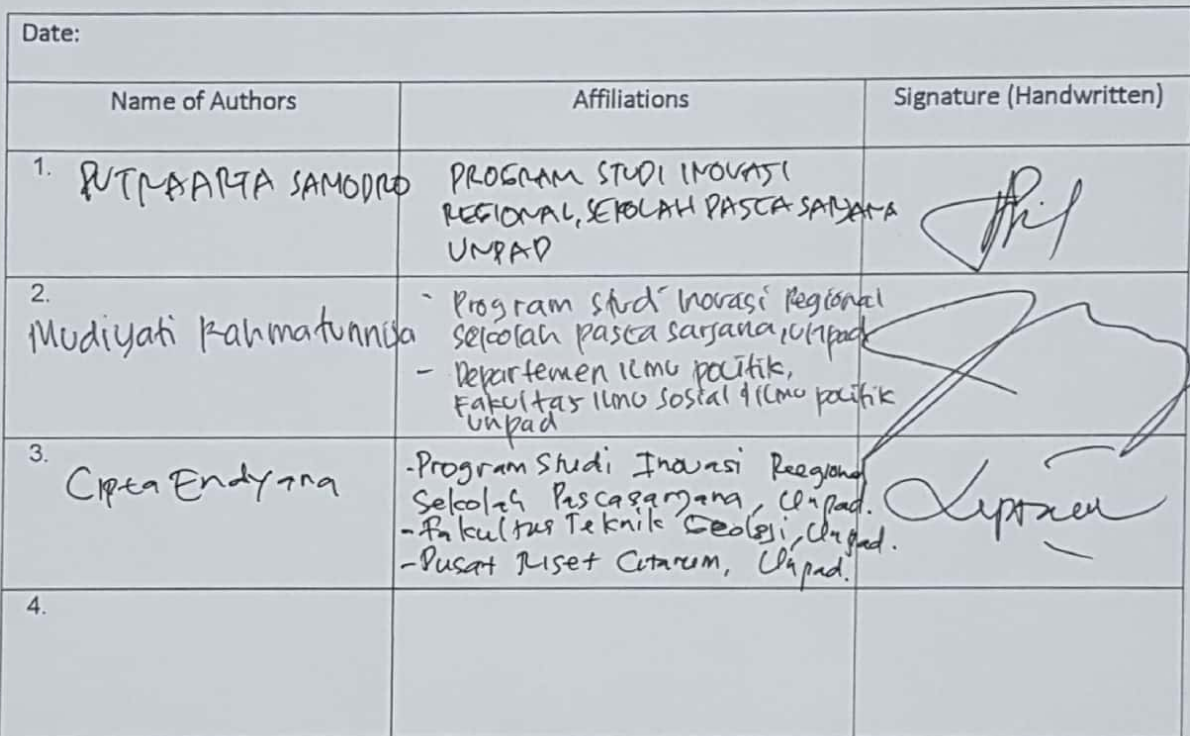 Date:
Name of Authors
Affiliations
Signature (Handwritten)
1.
PUTRAARTA SAMODRO
PROGRAM STUDI INOVASI
REGIONAL, SEKOLAH PASCA SARJANA
UNPAD
2.
Mudiyati Rahmatunnisa
- Program studi Inovasi Regional
Sekolah pasca sarjana, Unpad
- Departemen Ilmu politik,
Fakultas Ilmu Sosial & Ilmu politik
Unpad
3.
Cipta Endyana
-Program Studi Inovasi Reegional
Sekolah Pascasarjana, Unpad.
-Fakultas Teknik Geologi, Unpad.
-Pusat Riset Citarum, Unpad.
4.